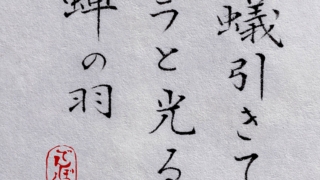 蟻引きて
ラと光る
蝉の羽